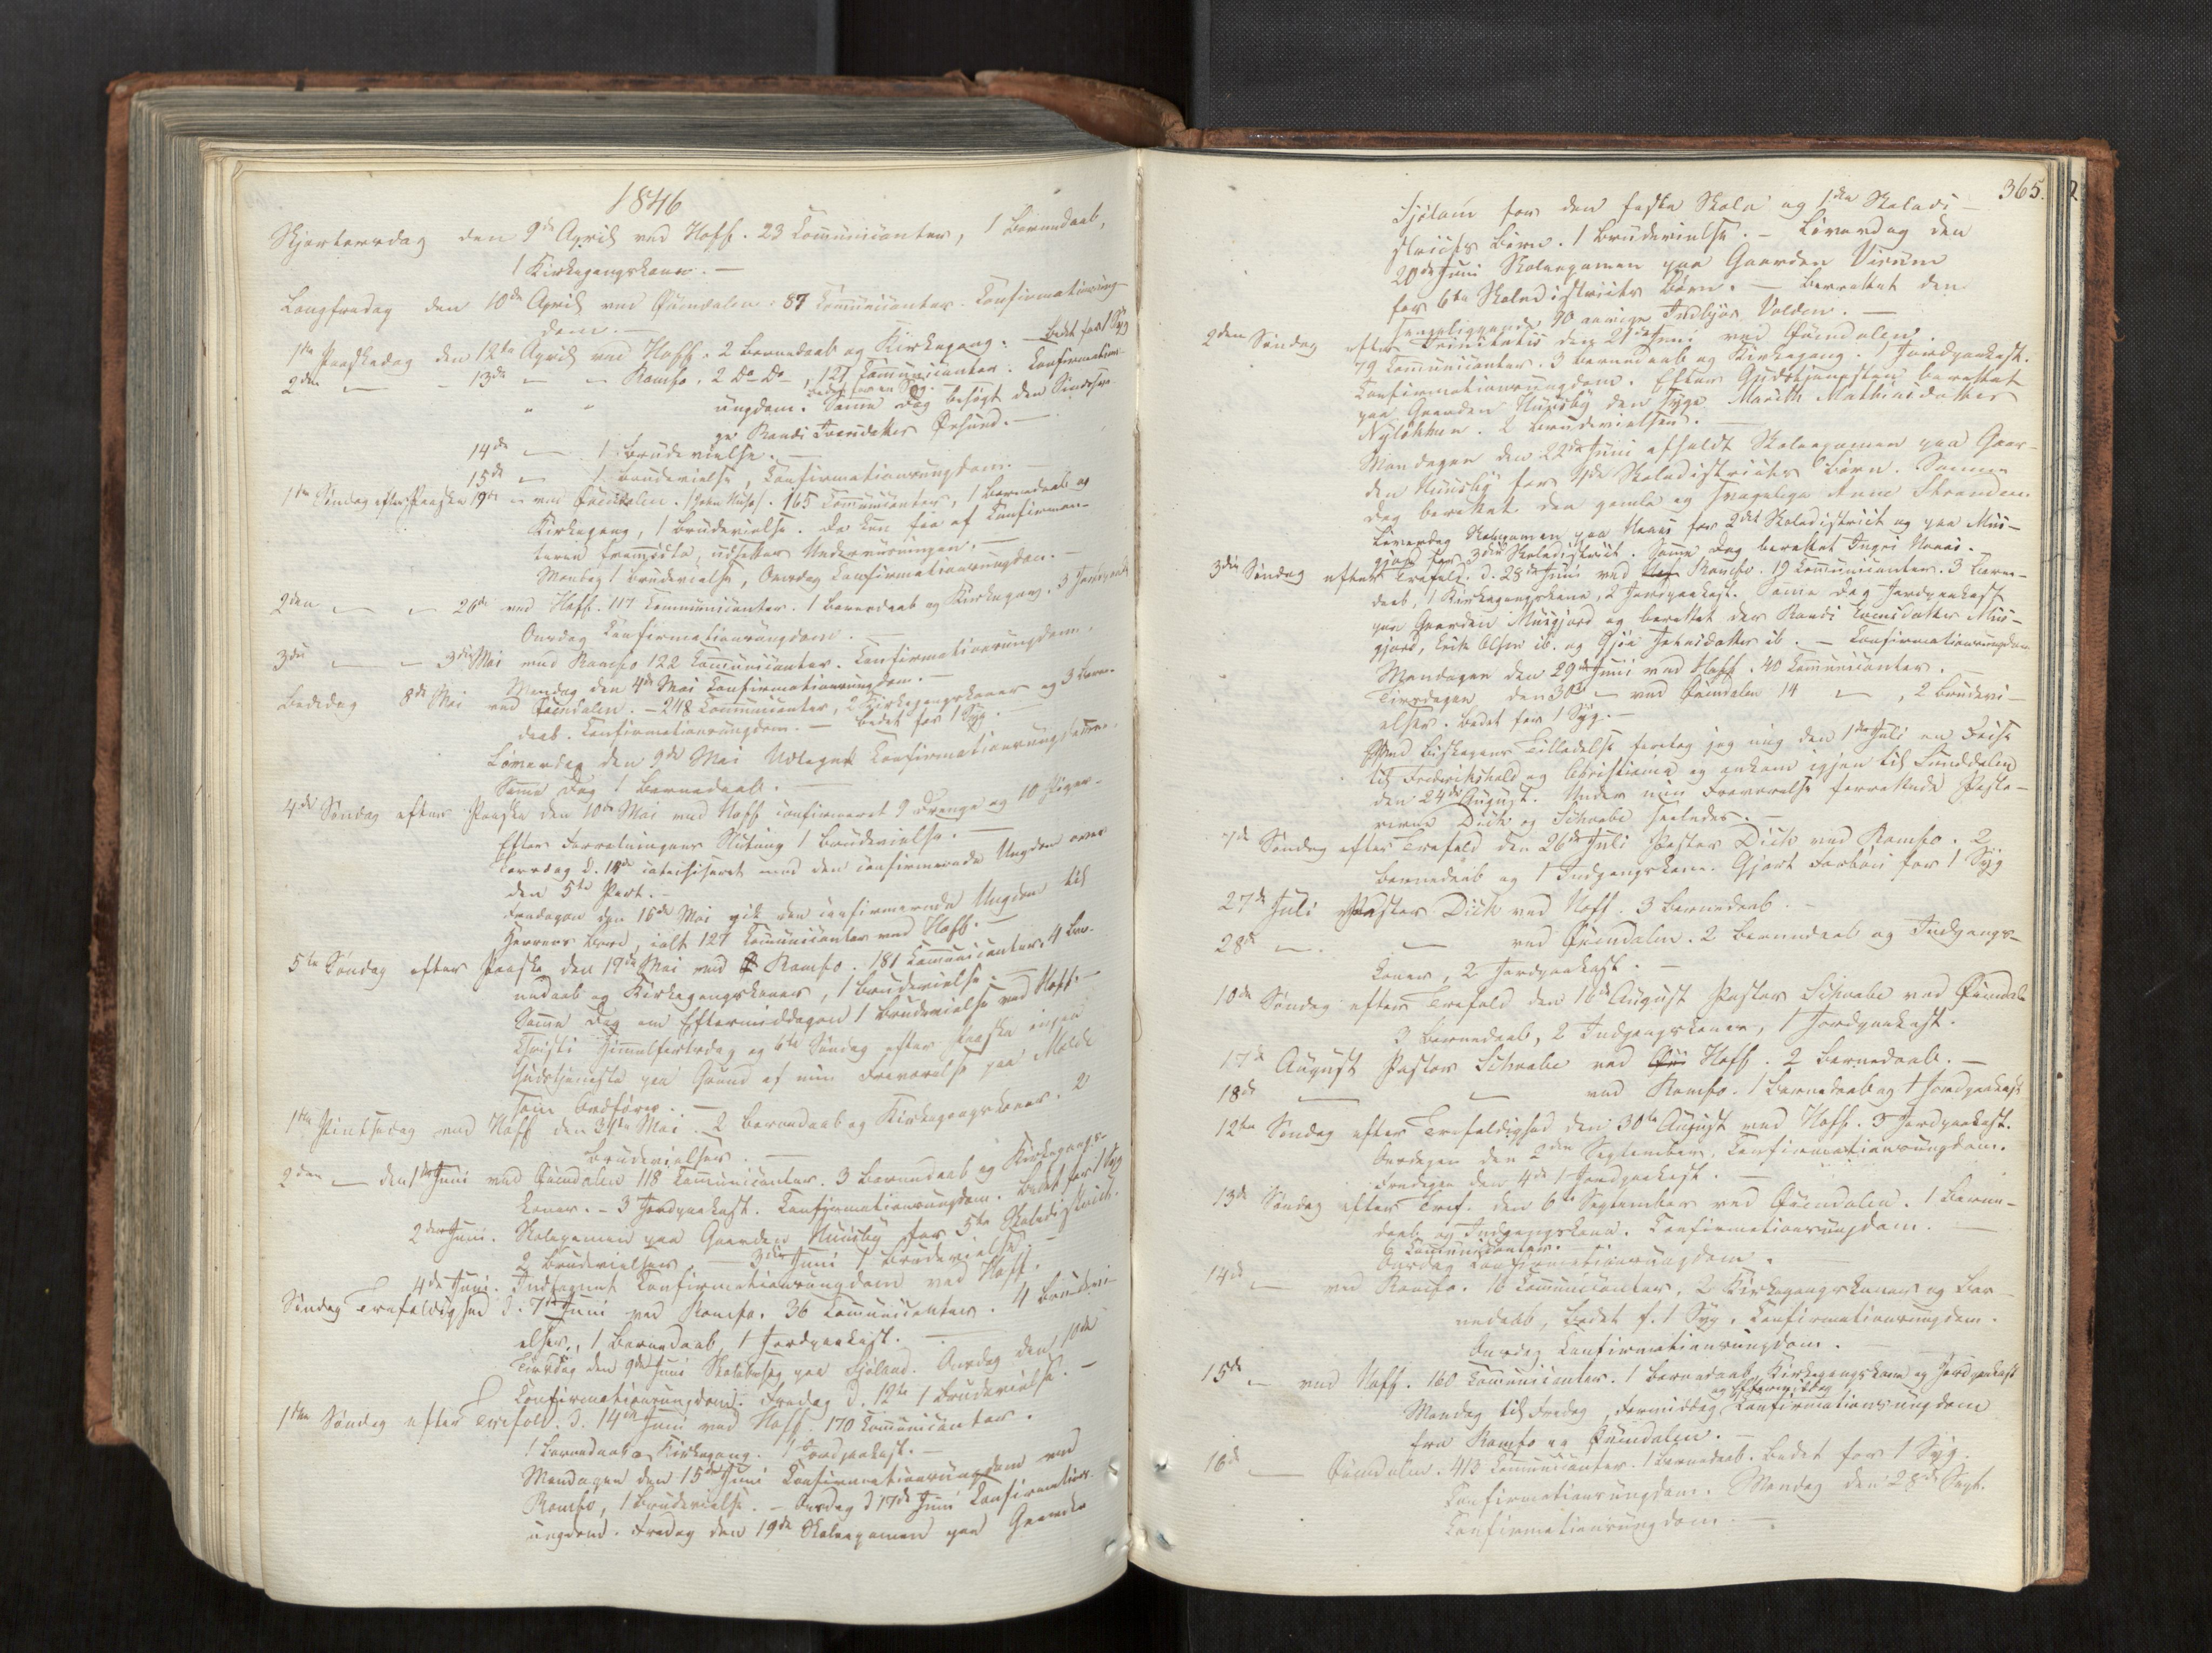 1846
Skjertorsdag den 9de April ved Hoff. 23 Communicanter, 1 Barnedaab,
1 Kirkegangskone. —
Langfredag den 10de April ved Öxendalen. 87 Communicanter. Confirmationsung-
dom. —
1ste Paaskedag den 12te April ved Hoff. 2 Barnedaab og Kirkegang. — Bedet for 1 Syg
2den — — 13de — — Romfo. 2 Do Do —, 121 Communicanter. Confirmations-
Bedet for en Syg. —
ungdom. Samme Dag besögt den Sindssva-
ge Randi Iversdatter Örsund. —
14de — 1 Brudevielse. —
15de — 1 Brudevielse, Confirmationsungdom. —
1ste Söndag efter Paaske 19de — ved Öxendalen. 165 Communicanter, 1 Barnedaab og
Kirkegang, 1 Brudevielse. Da kun faa af Confirman-
terne fremstod, udsattes Underviisningen. —
Mandag 1 Brudevielse, Onsdag Confirmationsungdom. —
2den — — 26de ved Hoff. 117 Communicanter. 1 Barnedaab og Kirkegang. 3 Jordpaak
Onsdag Confirmationsungdom. —
3die — — 3die Mai ved Romfo 122 Communicanter. Confirmationsungdom.
Mandag den 4de Mai Confirmationsungdom. —
Bededag 8de Mai ved Öxendalen. — 248 Communicanter, 2 Kirkegangskoner og 3 Barne-
daab. Confirmationsungdom. — Bedet for 1 Syg. —
Löverdag den 9de Mai Confirmationsungdommen.
Samme Dag 1 Barnedaab. —
4de Söndag efter Paaske den 10de Mai ved Hoff confirmeret 9 Drenge og 10 Piger.
Efter Forretningens Slutning 1 Brudevielse. —
Torsdag d. 14de catechiseret med den confirmerede Ungdom over
den 5te Part. —
Fredagen den 15de Mai gik den confirmerede Ungdom til
Herrens Bord, ialt 127 Communicanter ved Hoff. —
5te Söndag efter Paaske den 19de Mai ved Romfo. 181 Communicanter, 4 Bar-
nedaab og Kirkegangskoner, 1 Brudevielse —
Samme Dag om Eftermiddagen 1 Brudevielse ved Hoff. —
Christi Himmelfartsdag og 6te Söndag efter Paaske ingen
Gudstjeneste paa Grund af min Fraværelse paa Molde
som Ordförer. —
1ste Pintsedag ved Hoff den 31te Mai. 2 Barnedaab og Kirkegangskoner. 2
Brudevielser. —
2den — den 1ste Juni ved Öxendalen 118 Communicanter. 3 Barnedaab og Kirkegangs-
koner. — 3 Jordpaakast. Confirmationsungdom. Bedet for 1 Syg
2den Juni. Skolexamen paa Gaarden Huusby for 5te Skoledistrict.
2 Brudevielser — 3die Juni 1 Brudevielse. —
4de Juni. Confirmationsungdom ved Hoff.
Söndag Trefoldighed d. 7de Juni ved Romfo. 36 Communicanter. 4 Brudevi-
elser, 1 Barnedaab, 1 Jordpaakast. —
Tirsdag den 9de Juni paa Fjöland. Onsdag den 10de
Confirmationsungdom. Fredag d. 12te 1 Brudevielse. —
1ste Söndag efter Trefold. d. 14de Juni ved Hoff 170 Communicanter.
1 Barnedaab og Kirkegang. 1 Jordpaakast. —
Mandagen den 15de Juni Confirmationsungdom ved
Romfo, 1 Brudevielse. — Onsdag d 17de Juni Confirmations-
ungdom. Fredag den 19de Skolexamen paa Gaarden
365.
for den faste Skole og 1ste Skoledi-
stricts Börn. 1 Brudevielse. — Löverdag den
20de Juni Skolexamen paa Gaarden
for 6te Skoledistricts Börn. — Berettet den
90 aarige Volden. —
2den Söndag efter Trinitatis den 21de Juni ved Öxendalen.
79 Communicanter. 3 Barnedaab og Kirkegang. 1 Jordpaakast.
Confirmationsungdom. Efter Gudstjenesten berettet
paa Gaarden Huusby den syge Marith Mathiasdatter
Nylökken. 2 Brudevielser. —
Mandagen den 22de Juni afholdt Skolexamen paa Gaar-
den Huusby for 4de Skoledistricts Börn. Samme
Dag berettet den gamle og svagelige Anne Stranden.
Löverdag Skolexamen paa Haaes for 2det Skoledistrict og paa Mus-
gjord for 3die Skoledistrict. Samme Dag berettet Ingri Haaes. —
3die Söndag efter Trefold. d. 28de Juni ved Romfo. 19 Communicanter. 3 Barne-
daab, 1 Kirkegangskone, 2 Jordpaakast. Samme Dag Jordpaakast
paa Gaarden Musgjord og berettet der Randi Larsdatter Mus-
gjord, Erik Olsen ib. og Gjöe Johnsdatter ib. — Confirmationsungdom
Mandagen den 29de Juni ved Hoff. 40 Communicanter. —
Tirsdagen den 30te — ved Öxendalen 14 —, 2 Brudevi-
elser. Bedet for 1 Syg. —
Med Biskopens Tilladelse foretog jeg mig den 1ste Juli en Reise
til Frederikshald og Christiania og ankom igjen til Sunddalen
den 24de August. Under min Fraværelse forrettede Pasto-
rerne Dick og Schwabe saaledes. —
7de Söndag efter Trefold den 26de Juli Pastor Dick ved Romfo. 2
Barnedaab og 1 Indgangskone. Gjort Forbön for 1 Syg
27de Juli Pastor Dick ved Hoff. 3 Barnedaab. —
28de — — ved Öxendalen. 2 Barnedaab og Indgangs-
koner, 2 Jordpaakast. —
10de Söndag efter Trefold den 16de August Pastor Schwabe ved Öxendal
3 Barnedaab, 2 Indgangskoner, 1 Jordpaakast.
17de August Pastor Schwabe ved Hoff. 2 Barnedaab. —
18de — — ved Romfo. 1 Barnedaab og 1 Jordpaakast
12te Söndag efter Trefoldighed den 30te August ved Hoff. 3 Jordpaakast.
Onsdagen den 2den September, Confirmationsungdom.
Fredagen den 4de 1 Jordpaakast. —
13de Söndag efter Tref. den 6te September ved Öxendalen. 1 Barne-
daab og Indgangskone. Confirmationsungdom. —
6 Communicanter.
Onsdag Confirmationsungdom. —
14de — ved Romfo. 16 Communicanter, 2 Kirkegangskoner og Bar-
nedaab, bedet f. 1 Syg, Confirmationsungdom.
Onsdag Confirmationsungdom. —
15de — ved Hoff. 160 Communicanter. 1 Barnedaab, Kirkegangskone og Jordpaakast
og Eftermiddag
Mandag til Fredag, Formiddag Confirmationsungdom
fra Romfo og Öxendalen. —
16de — Öxendalen. 413 Communicanter. 1 Barnedaab. Bedet for 1 Syg.
Confirmationsungdom. Mandag den 28de Sept.
Confirmationsungdom. —